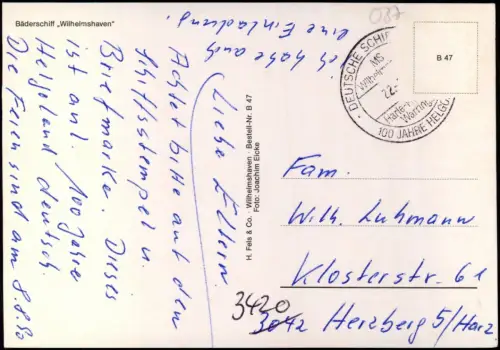 Bäderschiff „Wilhelmshaven"
Liebe Eltern.
Achtet bitte auf den
Schiffsstempel u.
Briefmarke. Dieses
ist anl. 100 Jahre
Helgoland deutsch
Die Feiern sind am 8.8.90
ich habe auch
eine Einladung.
H. Fels & Co. · Wilhelmshaven · Bestell-Nr. B 47
Foto: Joachim Eicke
087
DEUTSCHE SCHI
MS
Wilhel
22.
Harle
Warring
100 JAHRE HELGO
B 47
Fam.
Wilh. Luhmann
Klosterstr. 61
3420
3042 Herzberg 5/Harz